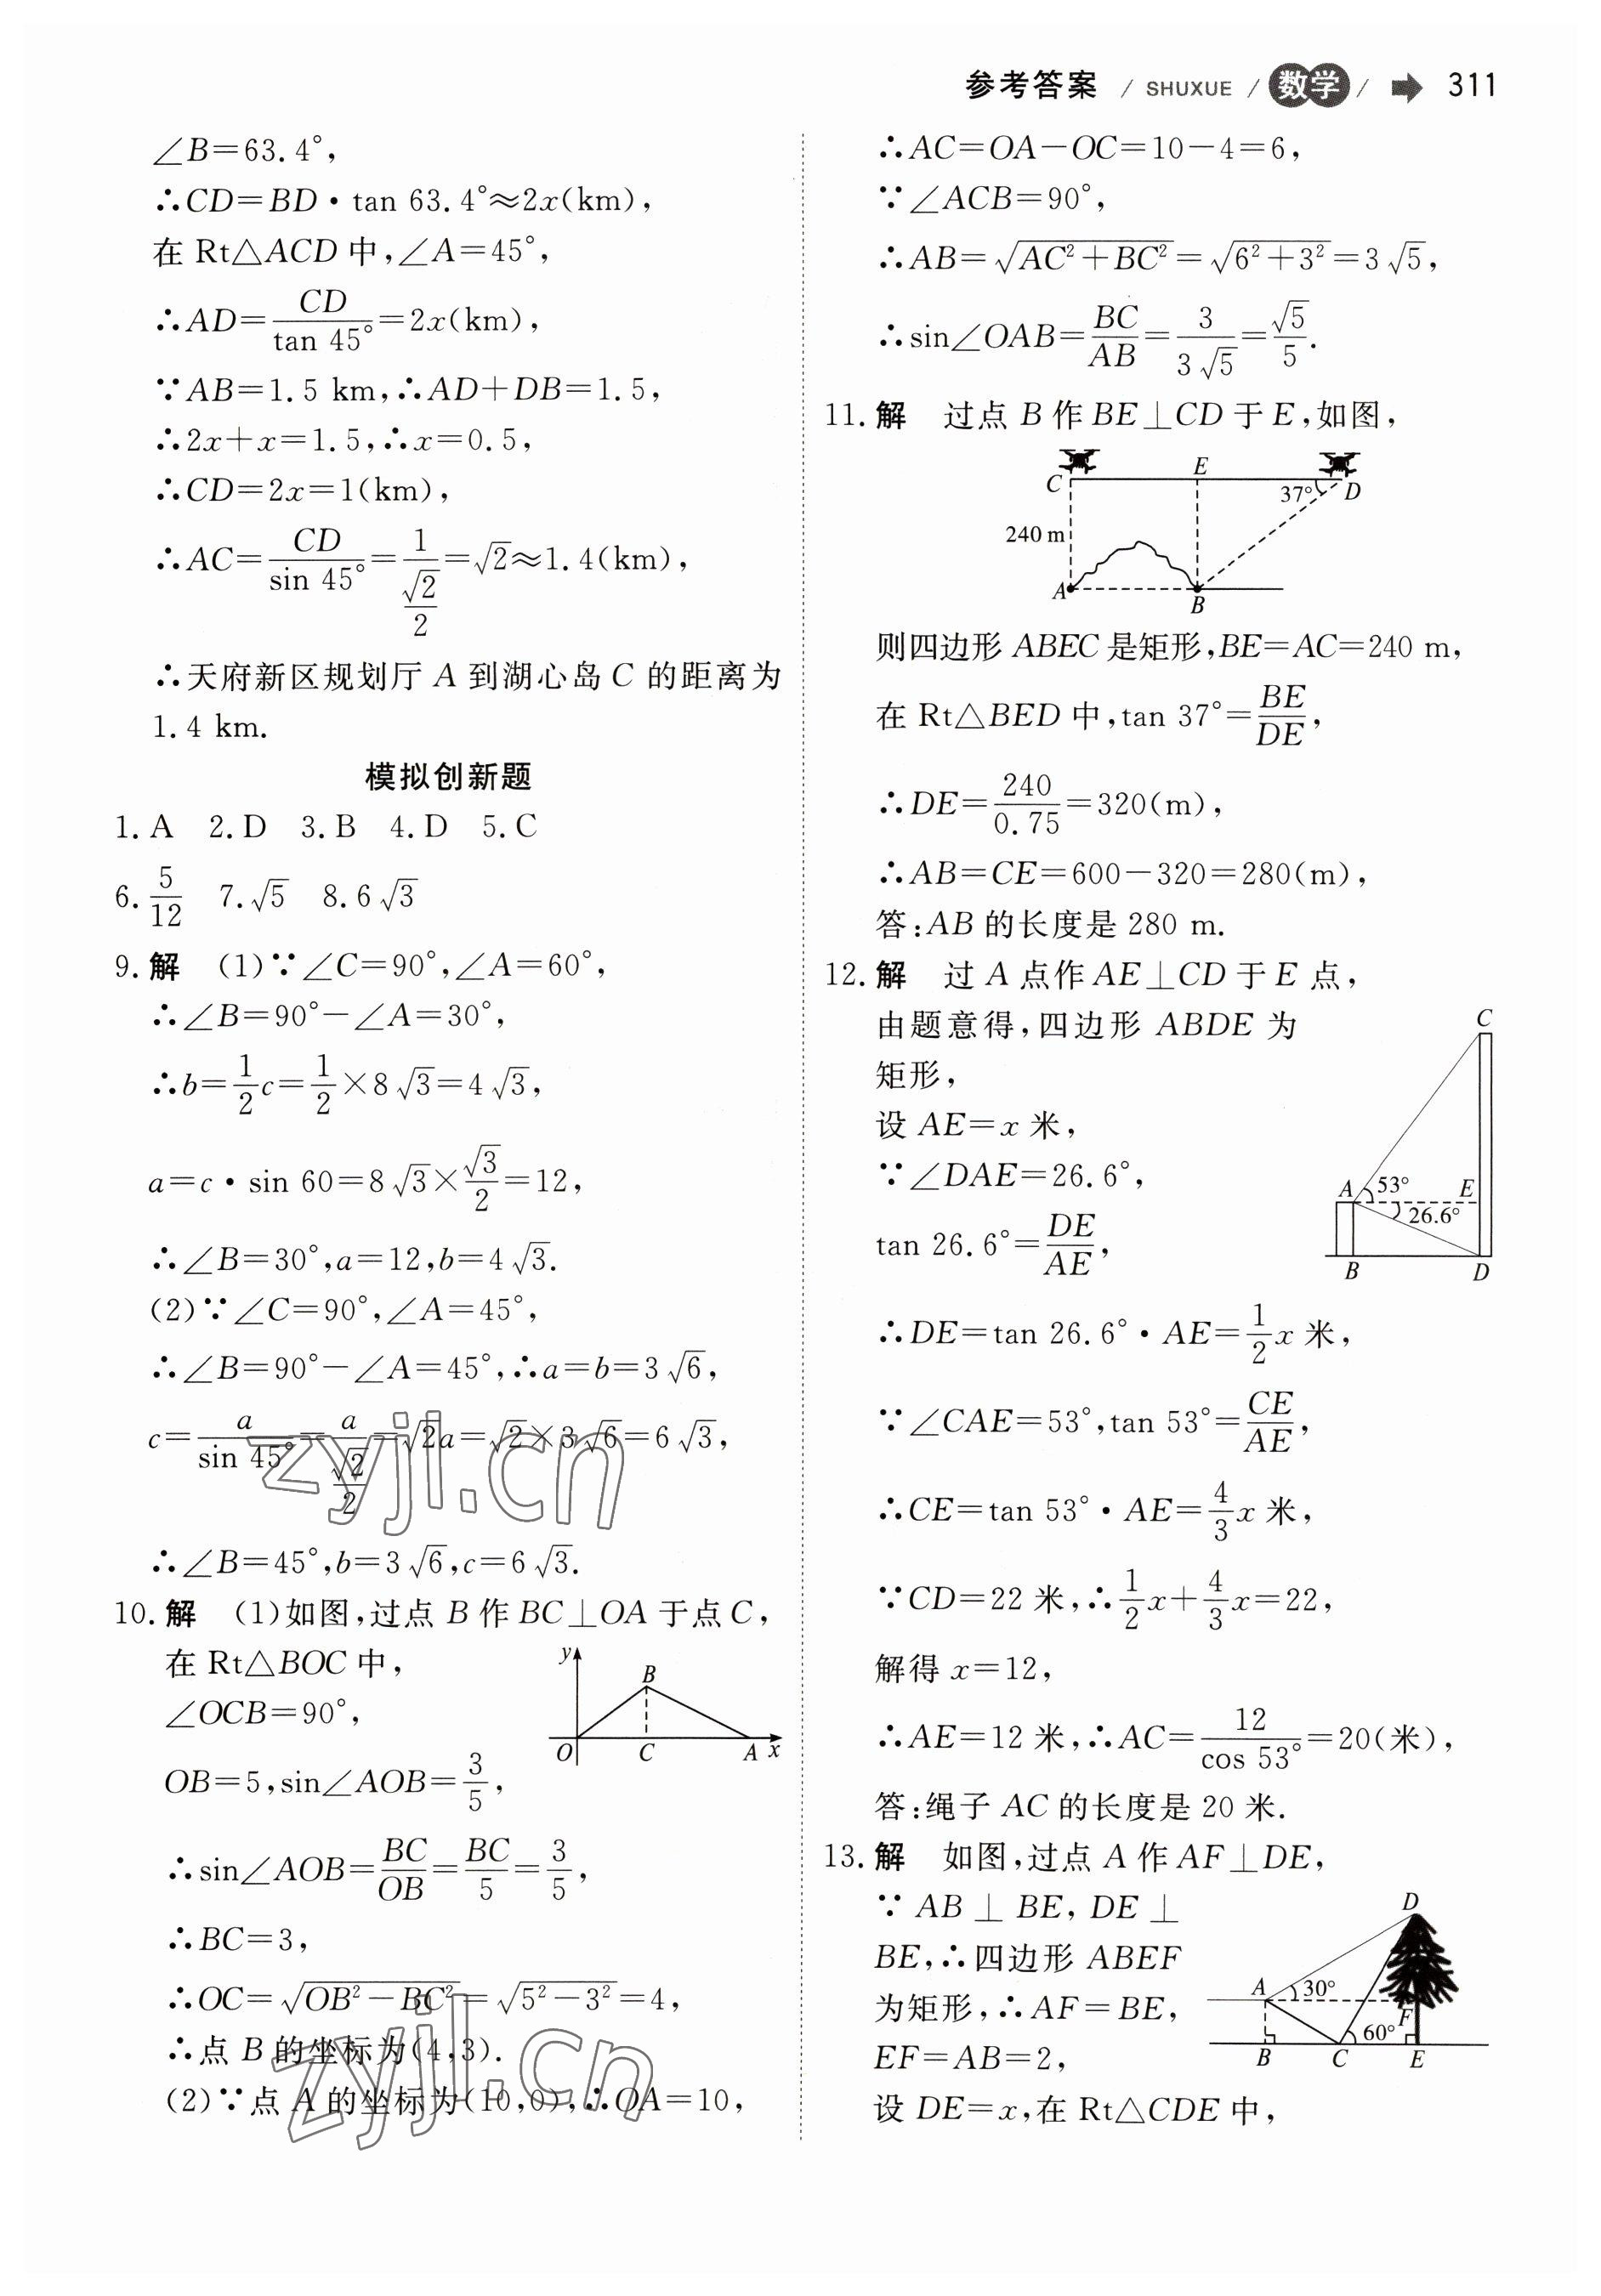 参考答案 / SHUXUE / 数学 / 311
∠B=63.4°,
∴CD=BD·tan 63.4°≈2x(km),
在 Rt△ACD 中,∠A=45°,
∴AD=CD/tan 45°=2x(km),
∵AB=1.5 km,∴AD+DB=1.5,
∴2x+x=1.5,∴x=0.5,
∴CD=2x=1(km),
∴AC=CD/sin 45°=1/(√2/2)=√2≈1.4(km),
∴天府新区规划厅 A 到湖心岛 C 的距离为
1.4 km.
模拟创新题
1.A 2.D 3.B 4.D 5.C
6.5/12 7.√5 8.6√3
9.解 (1)∵∠C=90°,∠A=60°,
∴∠B=90°-∠A=30°,
∴b=1/2c=1/2×8√3=4√3,
a=c·sin 60=8√3×√3/2=12,
∴∠B=30°,a=12,b=4√3.
(2)∵∠C=90°,∠A=45°,
∴∠B=90°-∠A=45°,∴a=b=3√6,
c=a/sin 45°=a/(√2/2)=√2a=√2×3√6=6√3,
∴∠B=45°,b=3√6,c=6√3.
10.解 (1)如图,过点 B 作 BC⊥OA 于点 C,
在 Rt△BOC 中,
∠OCB=90°,
OB=5,sin∠AOB=3/5,
y B O C A x
∴sin∠AOB=BC/OB=BC/5=3/5,
∴BC=3,
∴OC=√(OB²-BC²)=√(5²-3²)=4,
∴点 B 的坐标为(4,3).
(2)∵点 A 的坐标为(10,0),∴OA=10,
∴AC=OA-OC=10-4=6,
∵∠ACB=90°,
∴AB=√(AC²+BC²)=√(6²+3²)=3√5,
∴sin∠OAB=BC/AB=3/(3√5)=√5/5.
11.解 过点 B 作 BE⊥CD 于 E,如图,
C E 37° D
240 m
A B
则四边形 ABEC 是矩形,BE=AC=240 m,
在 Rt△BED 中,tan 37°=BE/DE,
∴DE=240/0.75=320(m),
∴AB=CE=600-320=280(m),
答:AB 的长度是 280 m.
12.解 过 A 点作 AE⊥CD 于 E 点,
由题意得,四边形 ABDE 为
矩形,
设 AE=x 米,
∵∠DAE=26.6°,
tan 26.6°=DE/AE,
C
A 53° E
26.6°
B D
∴DE=tan 26.6°·AE=1/2x 米,
∵∠CAE=53°,tan 53°=CE/AE,
∴CE=tan 53°·AE=4/3x 米,
∵CD=22 米,∴1/2x+4/3x=22,
解得 x=12,
∴AE=12 米,∴AC=12/cos 53°=20(米),
答:绳子 AC 的长度是 20 米.
13.解 如图,过点 A 作 AF⊥DE,
∵ AB ⊥ BE, DE ⊥
BE,∴四边形 ABEF
为矩形,∴AF=BE,
EF=AB=2,
设 DE=x,在 Rt△CDE 中,
D
A 30° F
60°
B C E
zyjl.cn
zyjl.cn